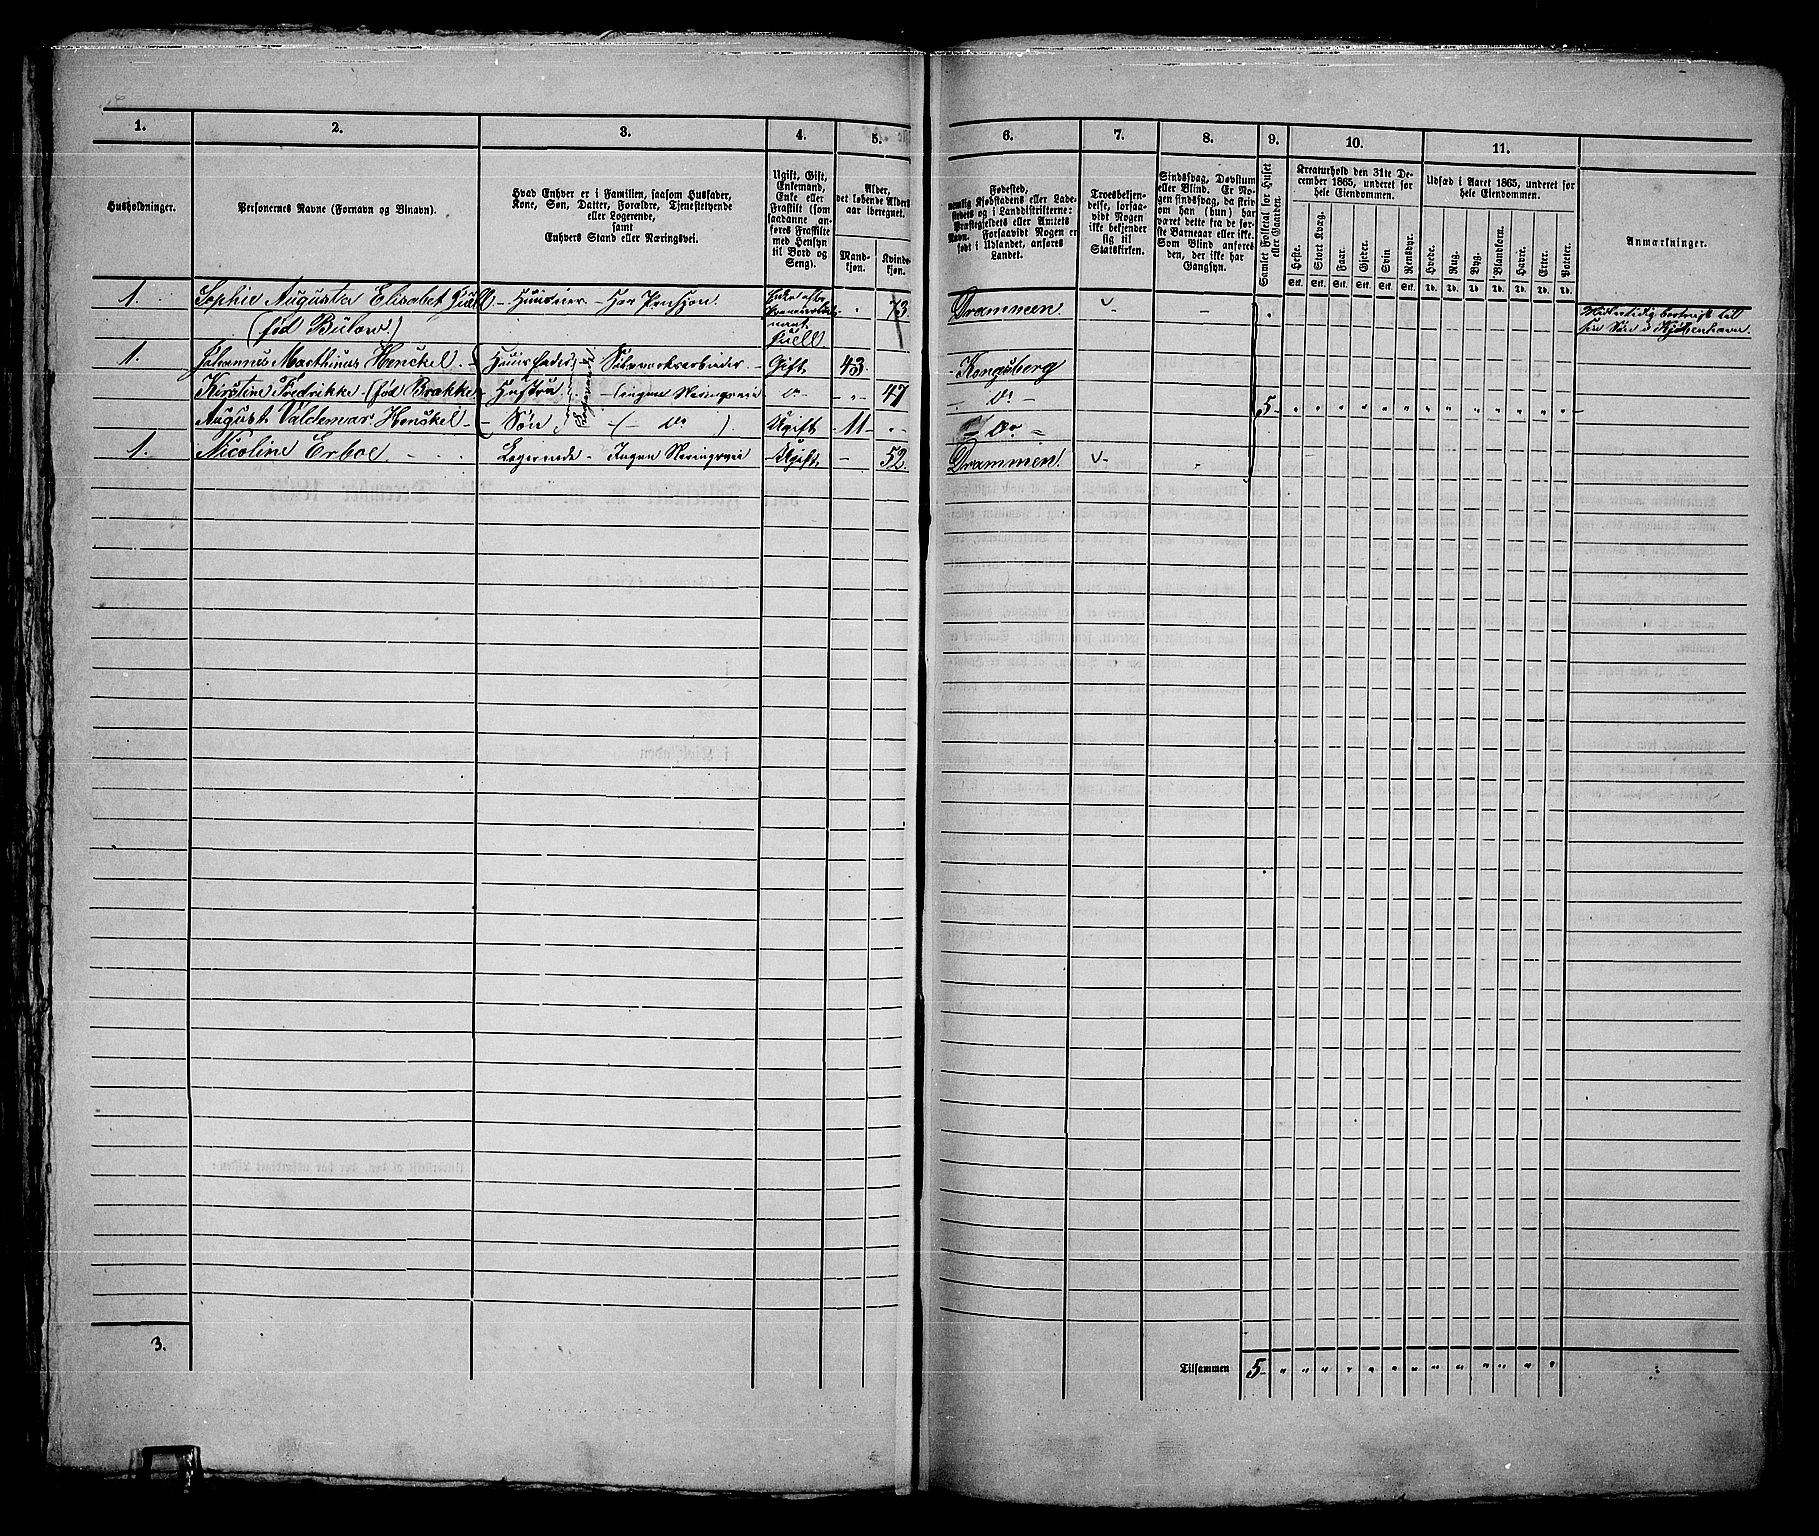 1. 2. 3. 4. 5. 6. 7. 8. 9. 10. 11.
Husholdninger.
Personernes Navne (Fornavn og Binavn).
Hvad Enhver er i Familien, saasom Husfader,
Kone, Søn, Datter, Forældre, Tjenestetyende
eller Logerende,
samt
Enhvers Stand eller Næringsvei.
Ugift, Gift,
Enkemand,
Enke eller
Fraskilt (som
saadanne an-
føres Fraskilte
med Hensyn
til Bord og
Seng).
Alder,
det løbende Alders-
aar iberegnet.
Mand-
kjøn.
Kvinde-
kjøn.
Fødested,
nemlig Kjøbstadens eller Lade-
stedets og i Landdistrikterne:
Præstegjeldets eller Amtets
Navn. Forsaavidt Nogen er
født i Udlandet, anføres
Landet.
Troesbekjen-
delse, forsaa-
vidt Nogen
ikke bekjender
sig til
Statskirken.
Sindssvag, Døvstum
eller Blind. Er No-
gen sindssvag, da skriv
om han (hun) har
været dette fra de før-
ste Barneaar eller ikke.
Som Blind anføres
den, der ikke har
Gangsyn.
Samlet Folketal for Huset
eller Gaarden.
Kreaturhold den 31te De-
cember 1865, underet for
hele Eiendommen.
Heste. Stort Kvæg. Faar. Gjeder. Svin Rensdyr.
Stk. Stk. Stk. Stk. Stk. Stk.
Udsæd i Aaret 1865, underet for
hele Eiendommen.
Hvede. Rug. Byg. Blandkorn. Havre. Erter. Poteter.
Td. Td. Td. Td. Td. Td. Td.
Anmærkninger.
1. Sophie Augusta Elisabet Juell - Huusier - Har Pension. Enke efter 73. Drammen
(fød Bülow.) Juell.
Midlertidig bortreist til
sin Søn i Kjøbenhavn
1. Johannes Marthinus Henckel Huusfader - Sølvværksarbeider - Gift - 43. - Kongsberg
Kirstine Fredrikke (fød Brække Hustru - (ingen Næringsvei do - 47 do - 5
August Valdemar Henckel - Søn (- do ). Ugift - 11 - do -
Logerende
1. Nicoline Erboe Logerende - Ingen Næringsvei - Ugift - 52. Drammen.
3. Tilsammen 5